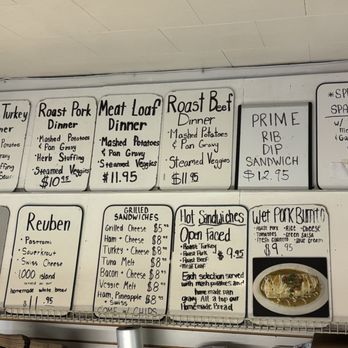 Turkey
Roast Pork
Dinner
• Mashed Potatoes
& Pan Gravy
• Herb Stuffing
• Steamed Veggies
Meat Loaf
Dinner
• Mashed Potatoes
& Pan Gravy
• Steamed Veggies
$11.95
Roast Beef
Dinner
• Mashed Potatoes
& Pan Gravy
• Steamed Veggies
$11.95
PRIME
RIB
DIP
SANDWICH
$12.95
Reuben
• Pastrami
• Sauerkraut
• Swiss Cheese
1,000 island
homemade white bread
GRILLED
SANDWICHES
Grilled Cheese $5
Ham + Cheese $8
Turkey + Cheese $8
Tuna Melt $8
Bacon + Cheese $8
Veggie Melt $8
Ham, Pineapple
+ Swiss $8
COMES w/ CHIPS
Hot Sandwiches
Open faced
• Roast Turkey
• Roast Pork
• Roast Beef
• Meat Loaf
$9.95
Each selection served
with mash potatoes and
home made pan
gravy. All a top our
Homemade Bread
Wet Pork Burrito
• Roast Pork • Rice • Cheese
• Tomatoes • green salsa
• Fresh Cilantro • sour cream
$9.95